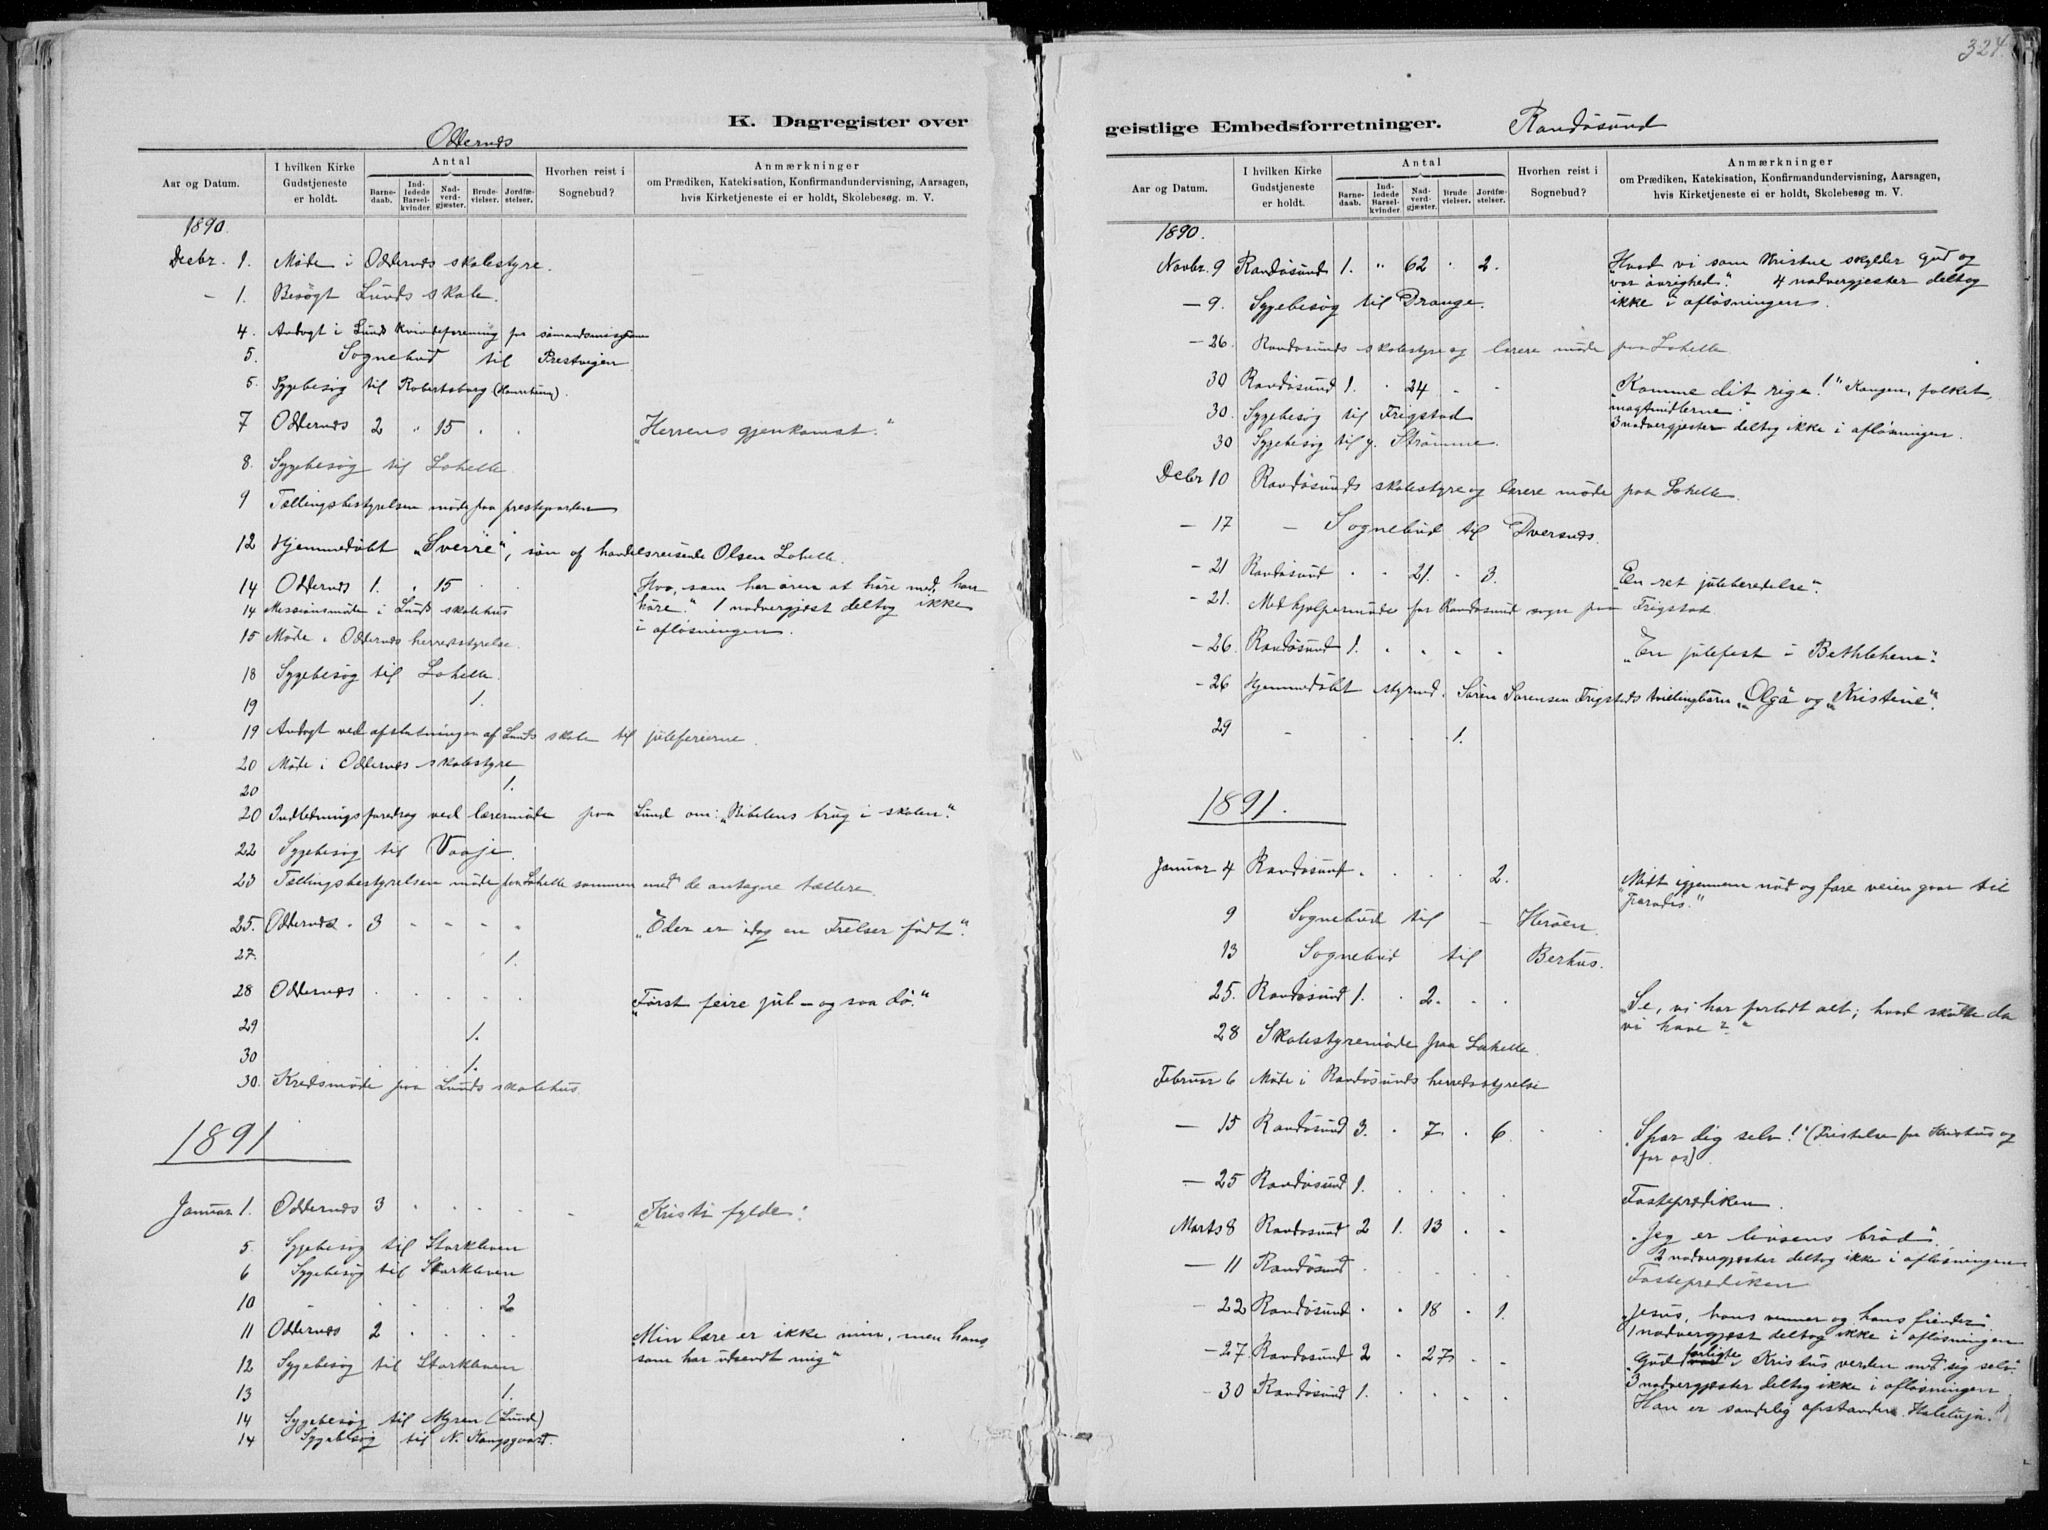 K. Dagregister over
Oddernes
Aar og Datum.
I hvilken Kirke Gudstjeneste er holdt.
Antal
Barnedaab.
Indledede Barselkvinder.
Nadverdgjæster.
Brudevielser.
Jordfæstelser.
Hvorhen reist i Sognebud?
Anmærkninger
om Prædiken, Katekisation, Konfirmandundervisning, Aarsagen,
hvis Kirketjeneste ei er holdt, Skolebesøg m. V.
1890.
Decbr. 1. Møde i Oddernes skolestyre.
— 1. Besøgt Lunds skole.
4. Andagt i Lunds kvindeforening for sømandsmissionen
5. Sognebud til Prestvigen
5. Sygebesøg til Robertsborg
7 Oddernes 2 " 15 . . „Herrens gjenkomst."
8. Sygebesøg til Lahelle.
9 Tællingsbestyrelsen møde paa prestegaarden
12 Hjemmedøbt „Sverre", søn af handelsreisende Olsen Lahelle.
14 Oddernes 1. . 15 . „Hvo, som har øren at høre med, han
høre." 1 nadvergjest deltog ikke
i afløsningen.
14 Missionsmøde i Lunds skolehus
15 Møde i Oddernes herredsstyrelse.
18 Sygebesøg til Lahelle.
19 1.
19 Andagt ved afslutningen af Lunds skole til juleferierne.
20 Møde i Oddernes skolestyre
20 1.
20 Indledningsforedrag ved læremøde paa Lund om: „Bibelens brug i skolen."
22 Sygebesøg til Vaaje.
23 Tællingsbestyrelsen møde paa Lahelle sammen med de antagne tællere.
25. Oddernes . 3 . . . . „Eder er idag en Frelser født".
27. 1.
28 Oddernes . . . . . „Først feire jul – og saa dø."
29 1.
30 1.
30. Kredsmøde paa Lunds skolehus.
1891
Januar 1. Oddernes 3 . . . . - „Kristi fylde."
5. Sygebesøg til Storkleven
6 Sygebesøg til Storkleven
10 . . . . . 2
11 Oddernes 2 . . . . „Min lære er ikke min, men hans,
som har udsendt mig"
12 Sygebesøg til Storkleven
13 1.
14 Sygebesøg til Myren (Lund)
14 Sygebesøg til N. Kongsgaard.
324.
geistlige Embedsforretninger.
Randøsund
Aar og Datum.
I hvilken Kirke Gudstjeneste er holdt.
Antal
Barnedaab.
Indledede Barselkvinder
Nadverdgjæster.
Brudevielser.
Jordfæstelser.
Hvorhen reist i Sognebud?
Anmærkninger
om Prædiken, Katekisation, Konfirmandundervisning, Aarsagen,
hvis Kirketjeneste ei er holdt, Skolebesøg m. V.
1890.
Novbr. 9 Randøsund 1. " 62 . 2. „Hvad vi som kristne skylder Gud og
vor øvrighed". 4 nadvergjester deltog
ikke i afløsningen.
— 9. Sygebesøg til Drange.
— 26. Randøsunds skolestyre og lærere møde paa Lahelle
30 Randøsund 1. . 24 . . „Komme dit rige!" Kongen, folket,
magtmidlerne.
3 nadvergjester deltog ikke i afløsningen.
30. Sygebesøg til Frigstad
30 Sygebesøg til y. Strømme.
Debr 10 Randøsunds skolestyre og lærere møde paa Lahelle.
— 17 — Sognebud til Dversnes.
— 21 Randøsund . . 21. . 3. „En ret juleberedelse".
— 21. Medhjælpermøde for Randøsund sogn paa Frigstad.
— 26. Randøsund 1. . . . . „En julefest i Bethlehem".
— 26 Hjemmedøbt styrmd. Søren Sørensen Frigsteds tvillingbørn „Olga og „Kristine".
29 1.
1891.
Januar 4 Randøsund . . . . 2. „Midt igjennem nød og fare veien gaar til
Paradis."
9 Sognebud til — Herøen.
13 Sognebud til Berhus.
25. Randøsund 1. . 2. . . „Se, vi har forladt alt; hvad skulle da
vi have?"
28 Skolestyremøde paa Lahelle.
Februar 6 Møde i Randøsunds herredsstyrelse
— 15 Randøsund 3. . 7 . 6. „Spar dig selv!" (Fristelse for Kristus og
for os).
— 25 Randøsund 1. . . . . Fasteprædiken.
Marts 8 Randøsund 2 1. 13 . . „Jeg er livsens brød".
2 nadvergjester deltog ikke i afløsningen
— 11 Randøsund . . . . . Fasteprædiken
— 22 Randøsund . . 18 . 1. „Jesus, hans venner og hans fiender".
1 nadvergjest deltog ikke i afløsningen
— 27. Randøsund 2 . 27 . . „Gud forligte i Kristus verden med sig selv."
3 nadvergjester deltog ikke i afløsningen
— 30 Randøsund 1. . . . . Han er sandelig opstanden. Haleluja!"